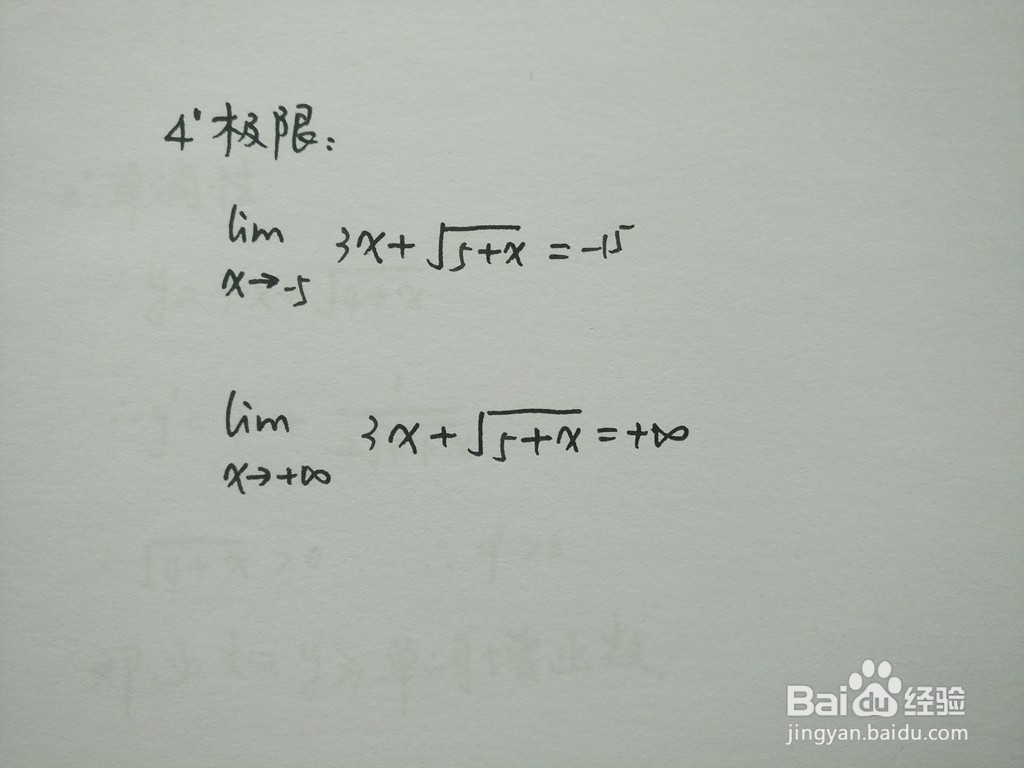 4°极限:
lim 3x+√5+x = -15
x→-5
lim 3x+√5+x = +∞
x→+∞
Bai du 经验
jingyan.baidu.com